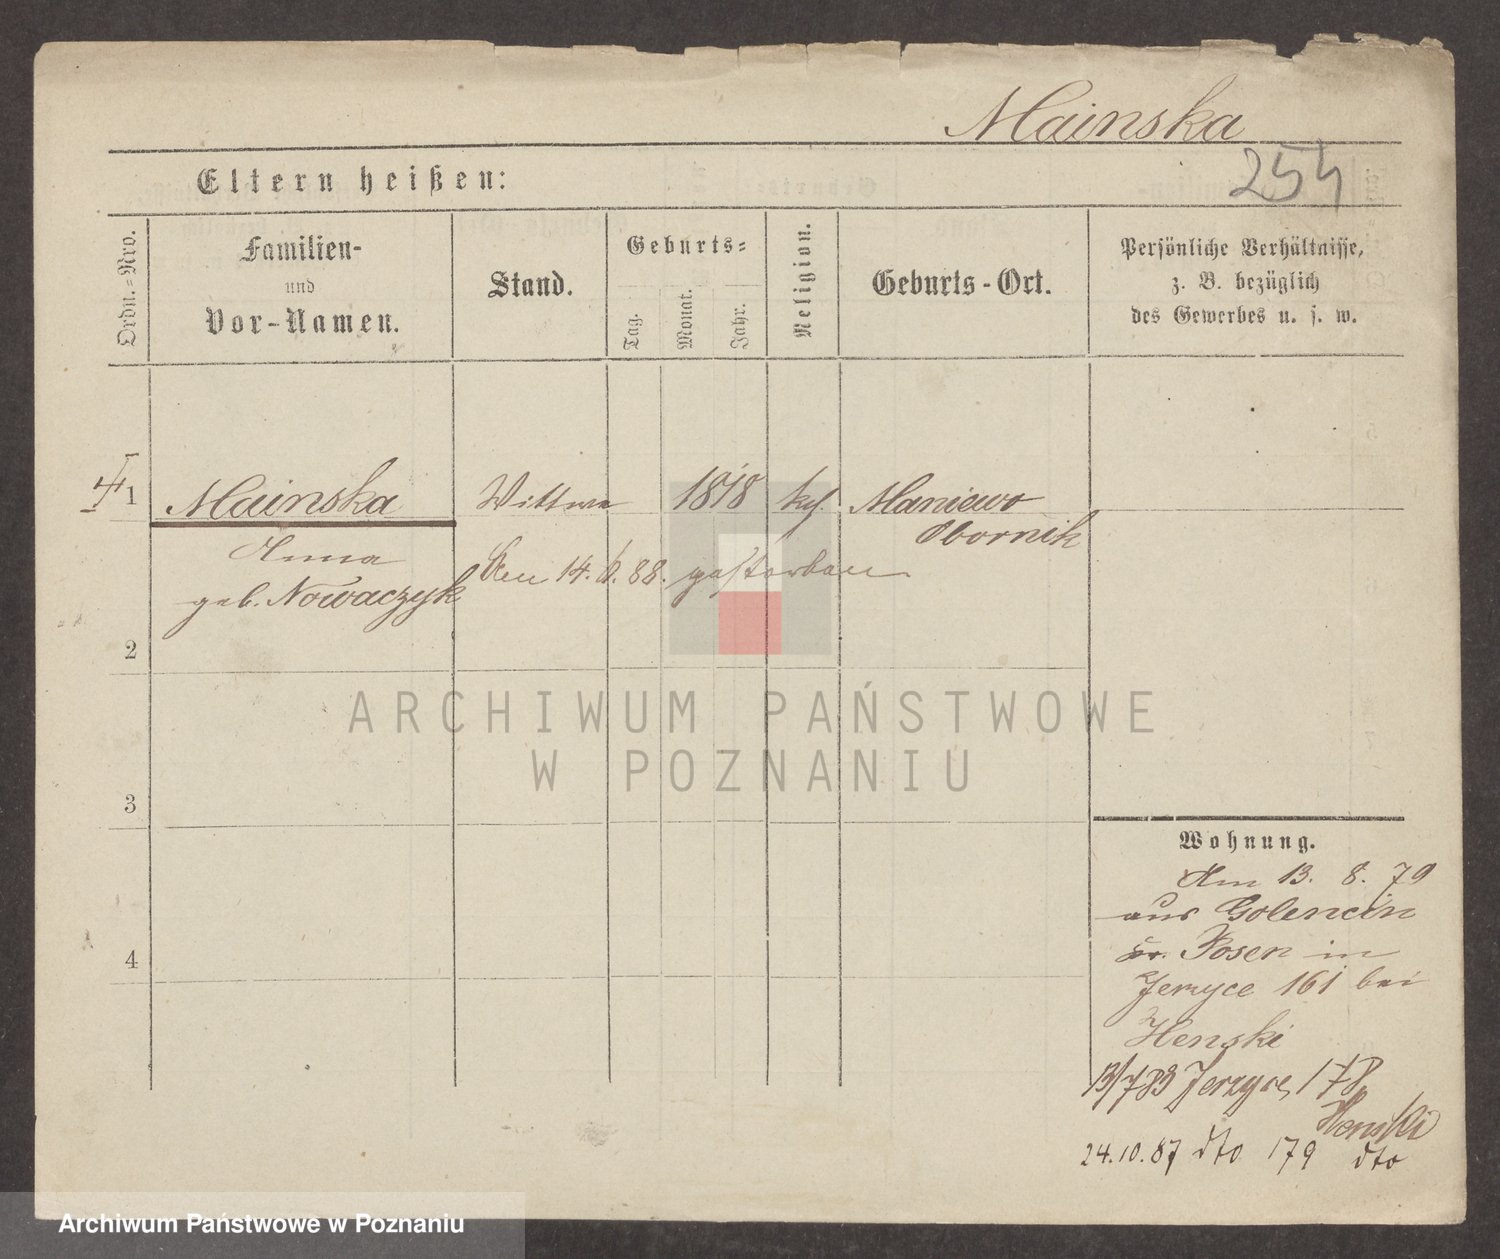 Mainska
254
Eltern heißen:
Ordn.=Nro.
Familien-
und
Vor-Namen.
Stand.
Geburts=
Tag.
Monat.
Jahr.
Religion.
Geburts-Ort.
Persönliche Verhältnisse,
z. B. bezüglich
des Gewerbes u. s. w.
1 Mainska Wittwe 1818 kth. Maniewo
Obornik
Anna
geb. Nowaczyk
Den 14. 6. 88. gestorben
2
3
4
ARCHIWUM PAŃSTWOWE
W POZNANIU
Wohnung.
Am 13. 8. 79
aus Golencin
Posen in
Jerzyce 161 bei
Henski
13/7 83 Jerzyce, 178
Henski
24.10.87 dto 179 dto
Archiwum Państwowe w Poznaniu